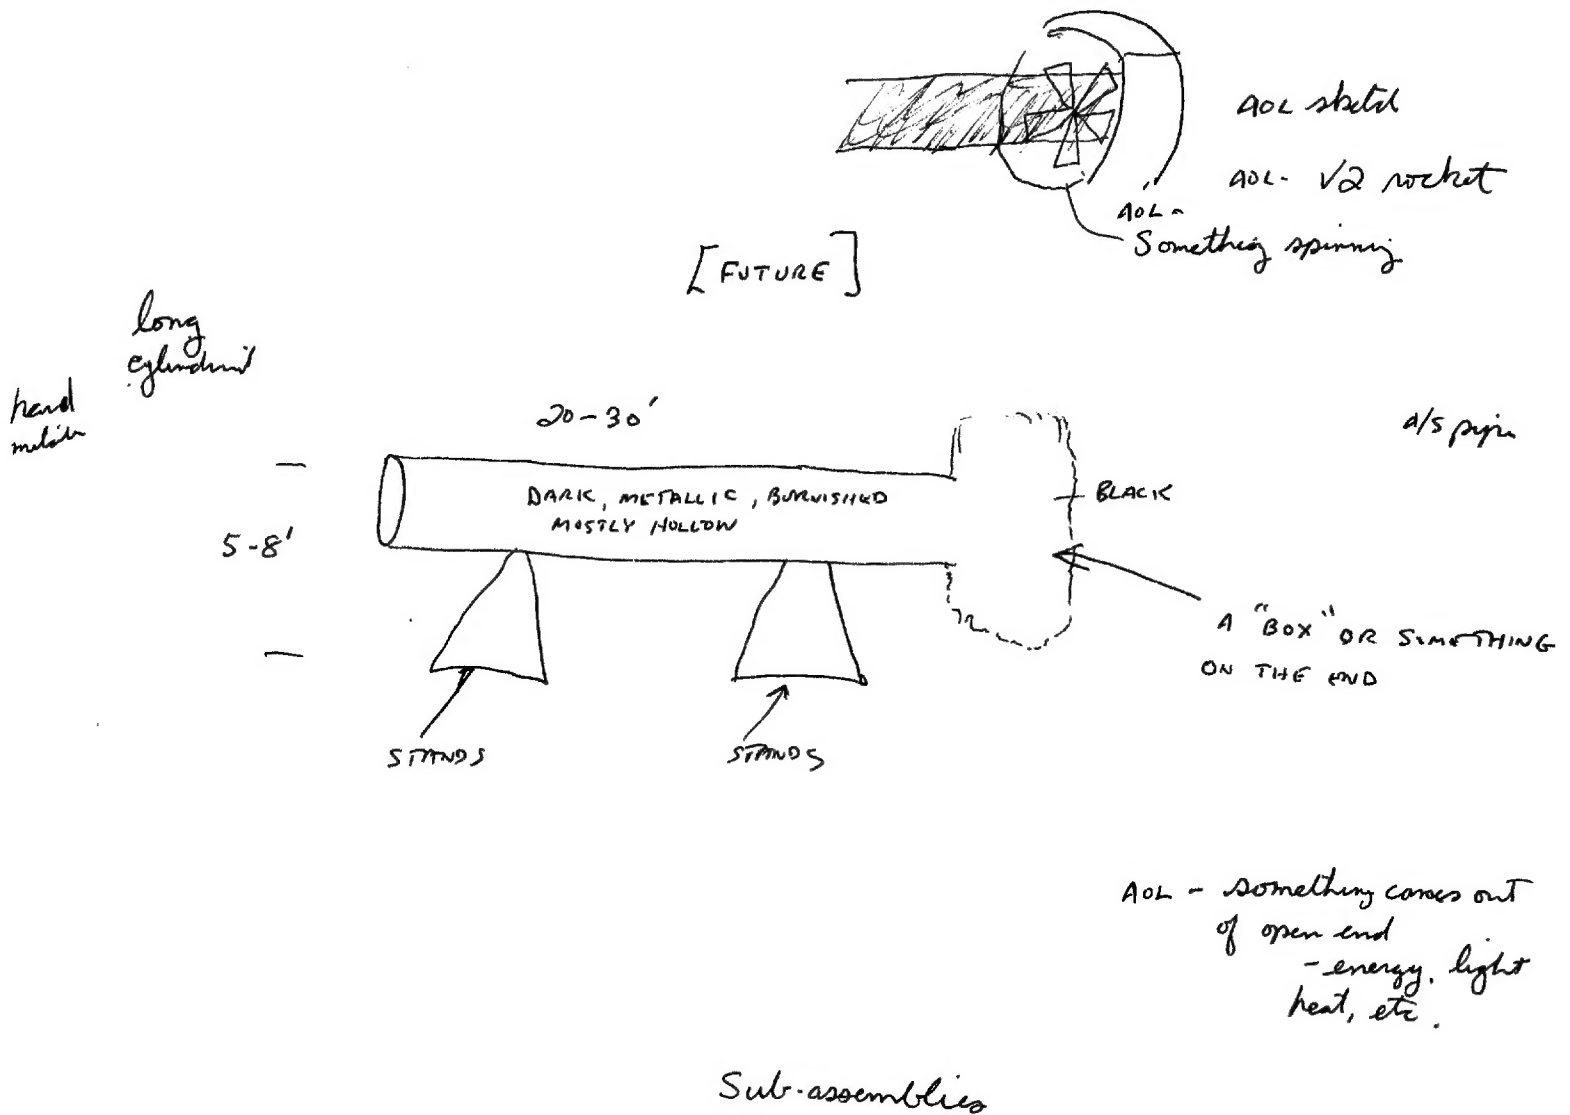 AOL sketch
AOL - V2 rocket
AOL -
Something spinning
[FUTURE]
long
cylindrical
hard
20-30'
A/S pipe
DARK, METALLIC, BURNISHED
MOSTLY HOLLOW
BLACK
5-8'
A "BOX" OR SOMETHING
ON THE END
STANDS
STANDS
AOL - something comes out
of open end
- energy, light
heat, etc.
Sub-assemblies